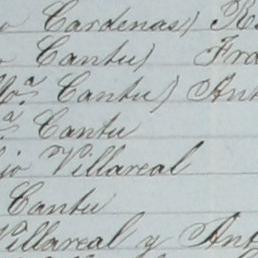 o Cardenas) R
o Cantu) Fra
Ma. Cantu) Ant
a. Cantu
jo Villareal
Cantu
Villareal y Ant